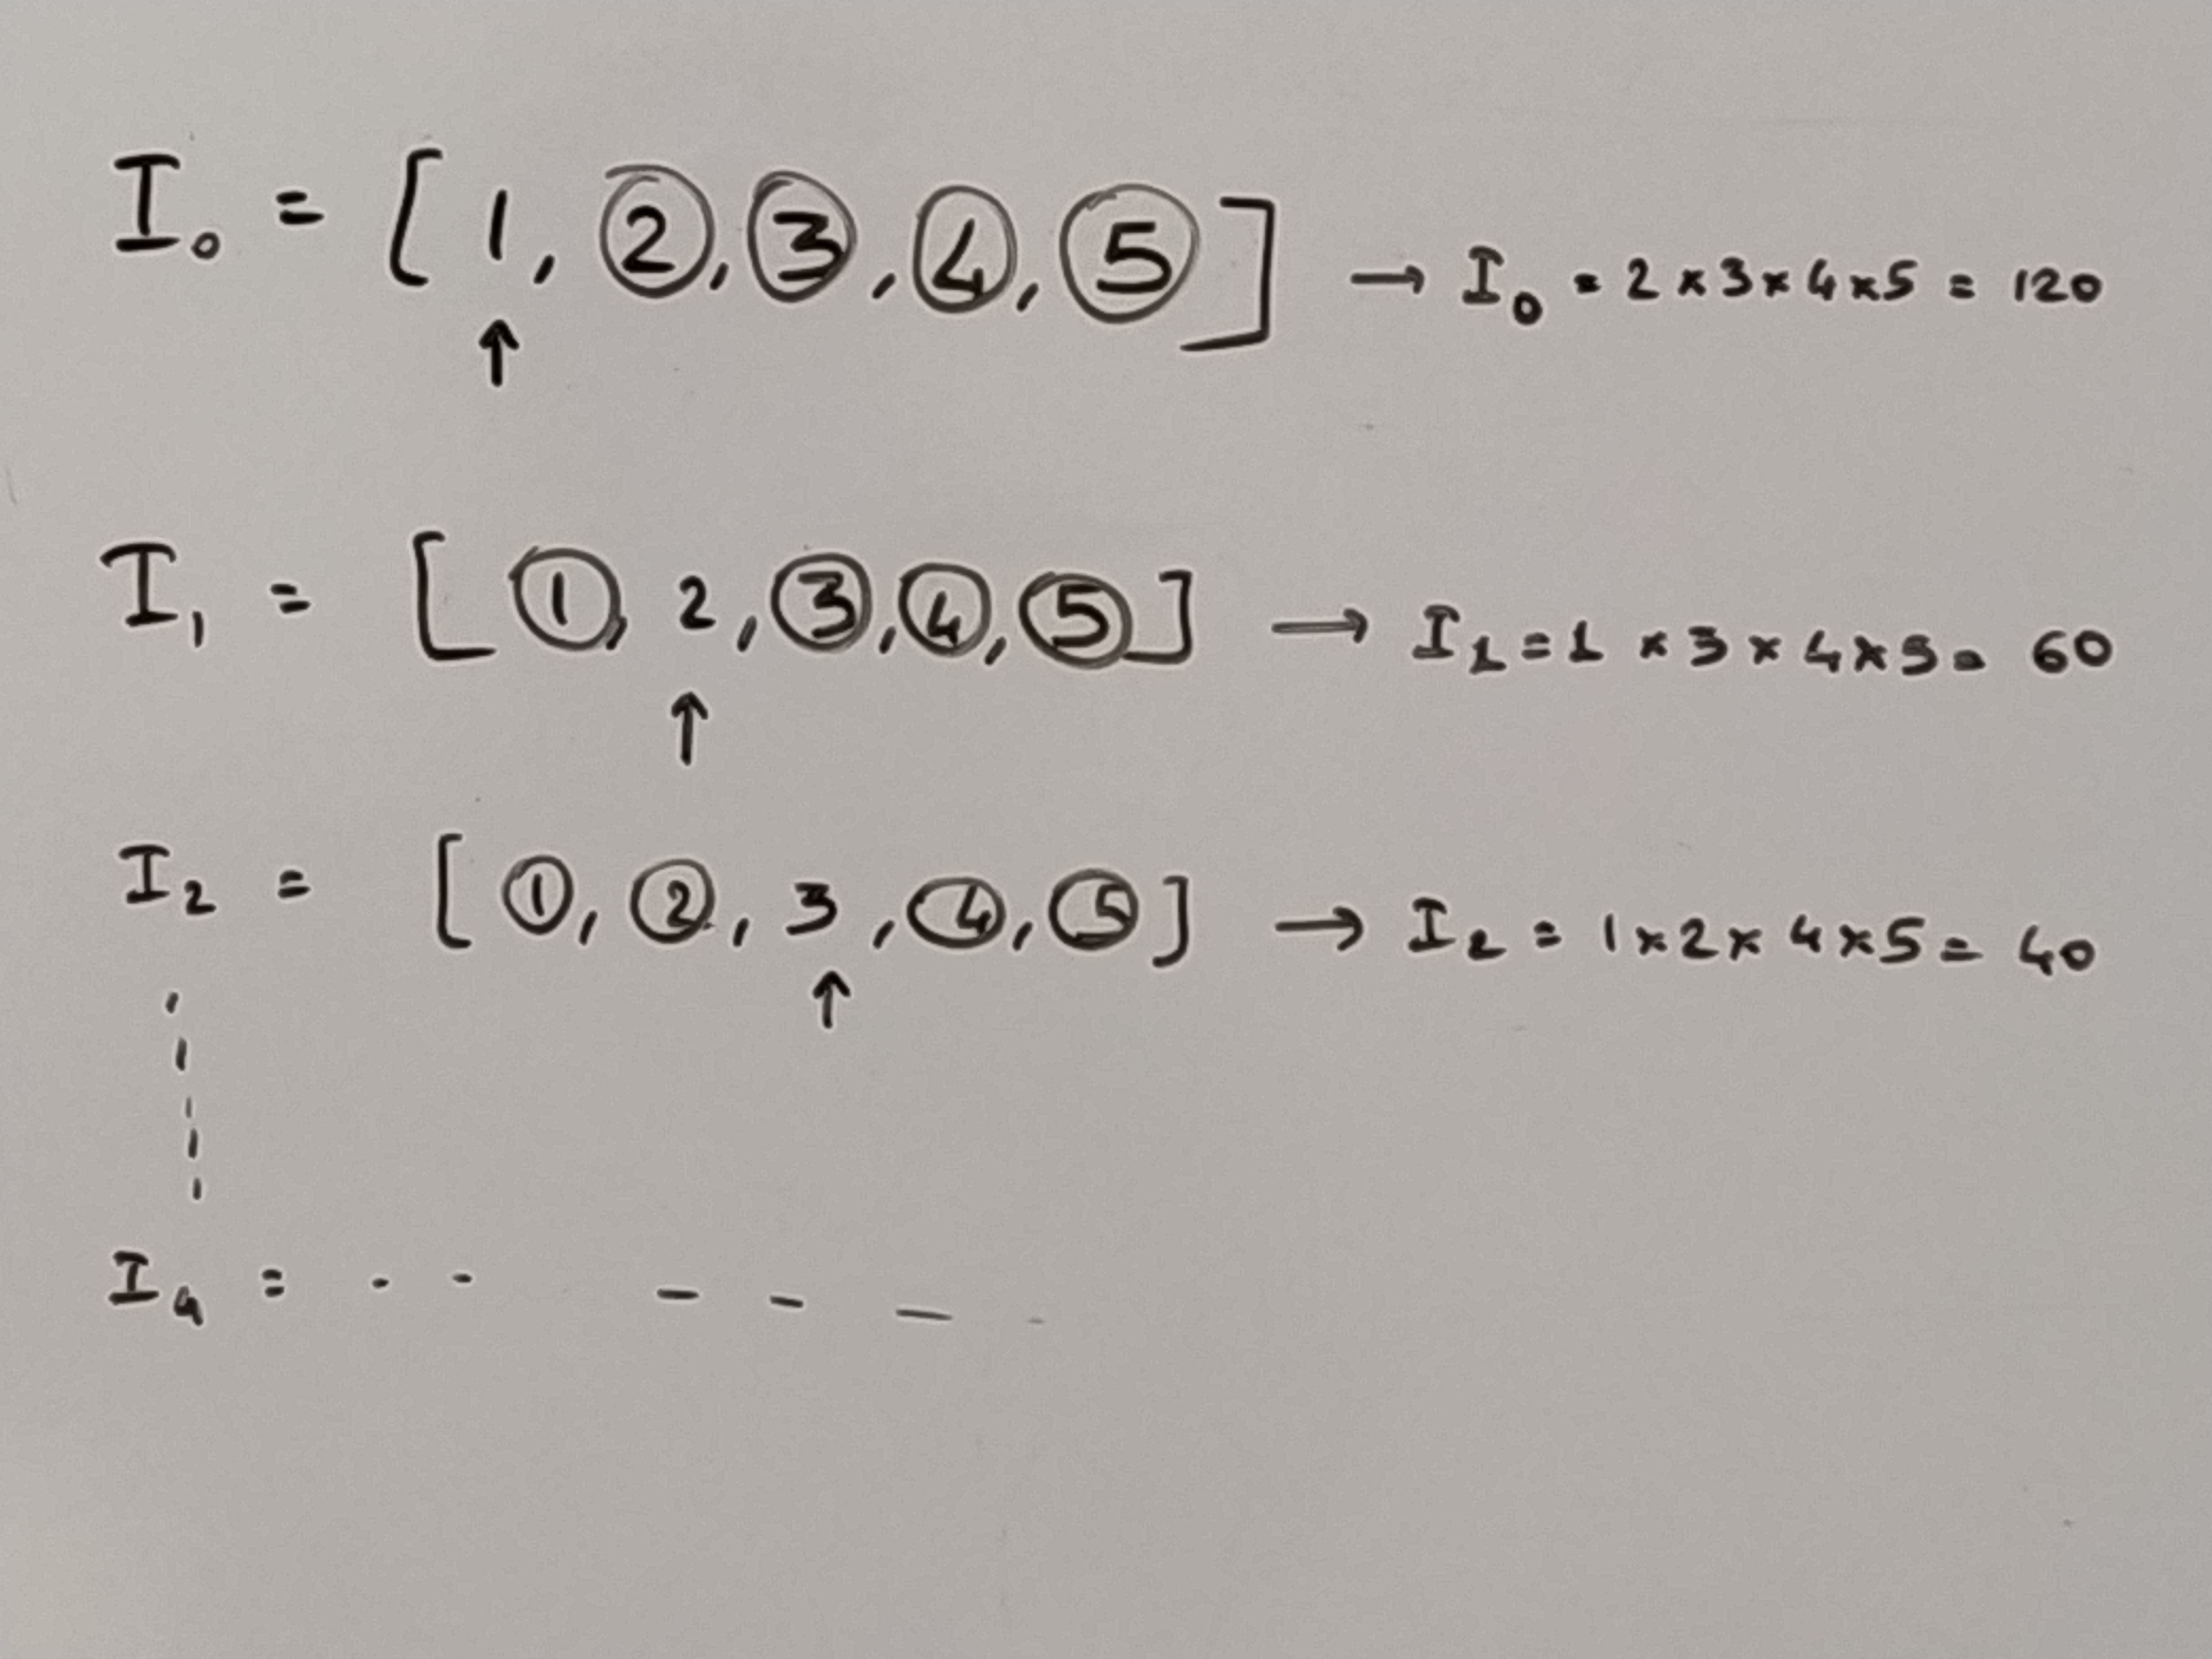 I₀ = [ 1, 2, 3, 4, 5 ] → I₀ = 2 × 3 × 4 × 5 = 120
↑
I₁ = [ 1, 2, 3, 4, 5 ] → I₁ = 1 × 3 × 4 × 5 = 60
↑
I₂ = [ 1, 2, 3, 4, 5 ] → I₂ = 1 × 2 × 4 × 5 = 40
↑
I₄ = - - - - - -